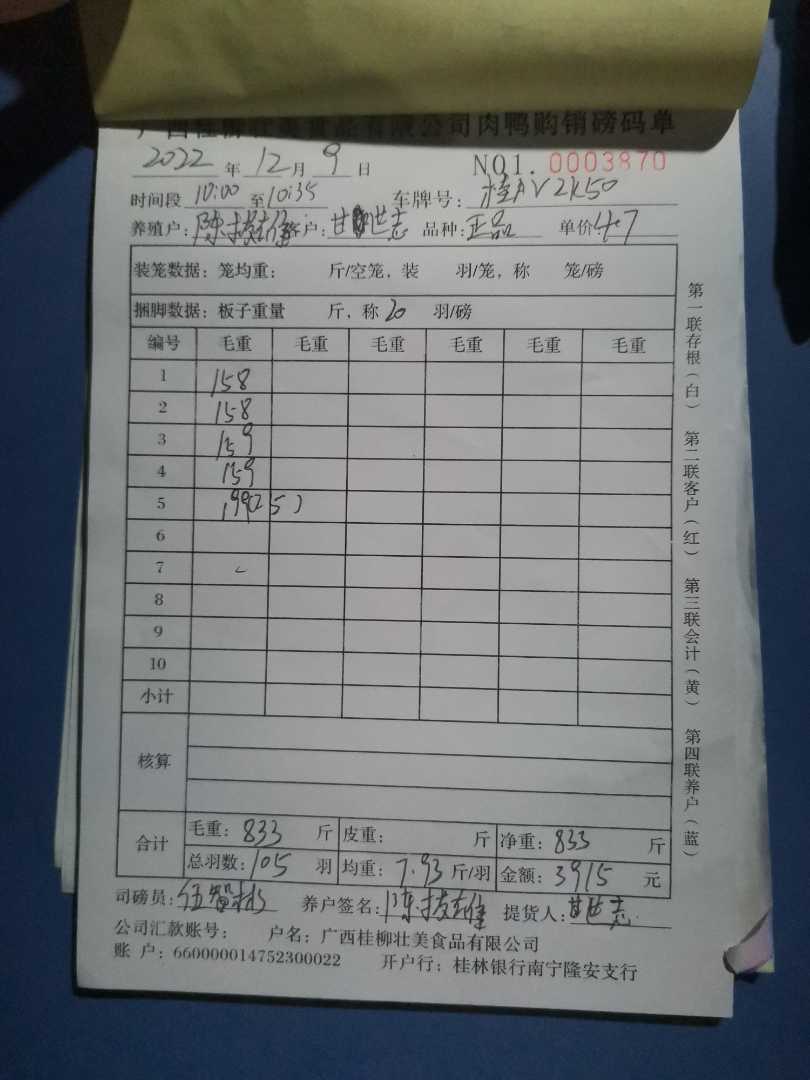 广西桂柳壮美食品有限公司肉鸭购销磅码单
2022 年 12 月 9 日 NO1. 0003870
时间段 10:00 至 10:35 车牌号: 桂AV2K50
养殖户: 陈 客户: 甘世志 品种: 正品 单价 4.7
装笼数据: 笼均重: 斤/空笼, 装 羽/笼, 称 笼/磅
捆脚数据: 板子重量 斤, 称 20 羽/磅
编号 毛重 毛重 毛重 毛重 毛重 毛重
1 158
2 158
3 159
4 159
5 199(25)
6
7
8
9
10
小计
核算
合计 毛重: 833 斤 皮重: 斤 净重: 833 斤
总羽数: 105 羽 均重: 7.93 斤/羽 金额: 3915 元
司磅员: 伍 养户签名: 陈 提货人: 甘世志
公司汇款账号: 户名: 广西桂柳壮美食品有限公司
账 户: 660000014752300022 开户行: 桂林银行南宁隆安支行
第一联存根(白) 第二联客户(红) 第三联会计(黄) 第四联养户(蓝)